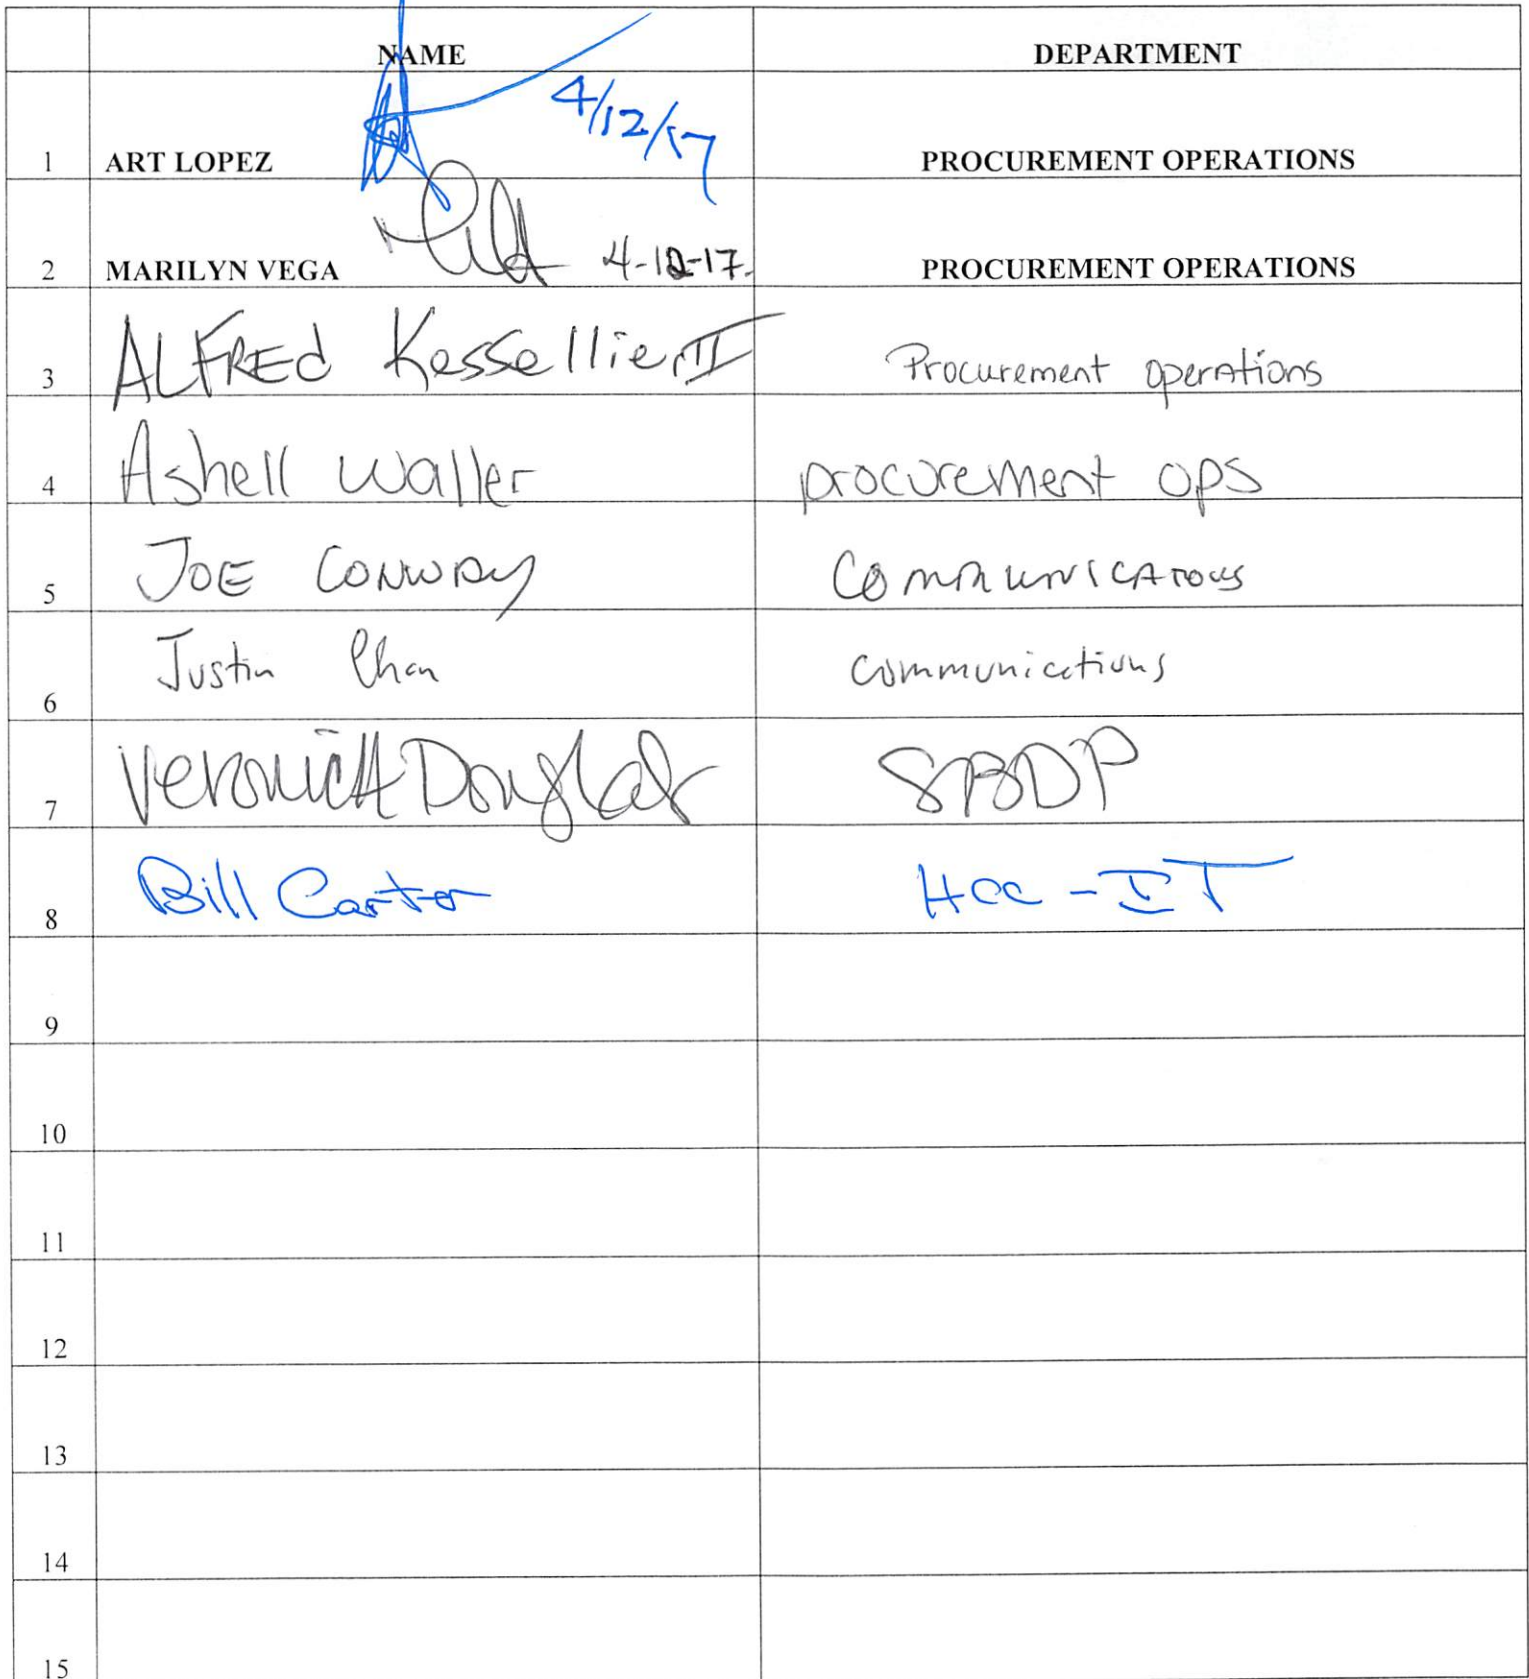 NAME DEPARTMENT
4/12/17
1 ART LOPEZ PROCUREMENT OPERATIONS
2 MARILYN VEGA 4-12-17. PROCUREMENT OPERATIONS
3 ALFREd Kessellier II Procurement operations
4 Ashell Waller procurement ops
5 JOE CONWAY Communications
6 Justin Chan Communications
7 Veronica Douglas SBDP
8 Bill Carter HCC - IT
9
10
11
12
13
14
15